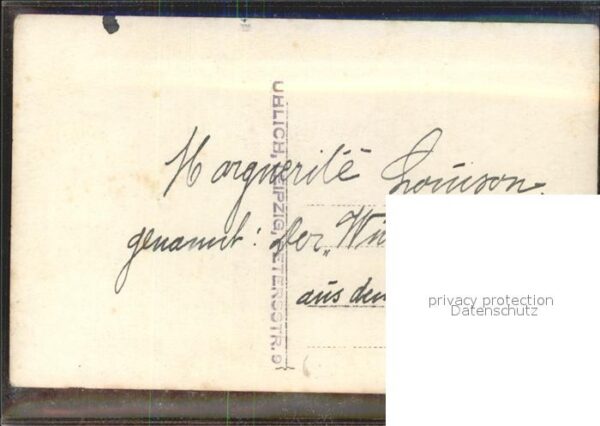 Marguerite Louison,
genannt: Der „Wi
aus den
UHLICH, LEIPZIG, PETERSSTR. 9
privacy protection
Datenschutz